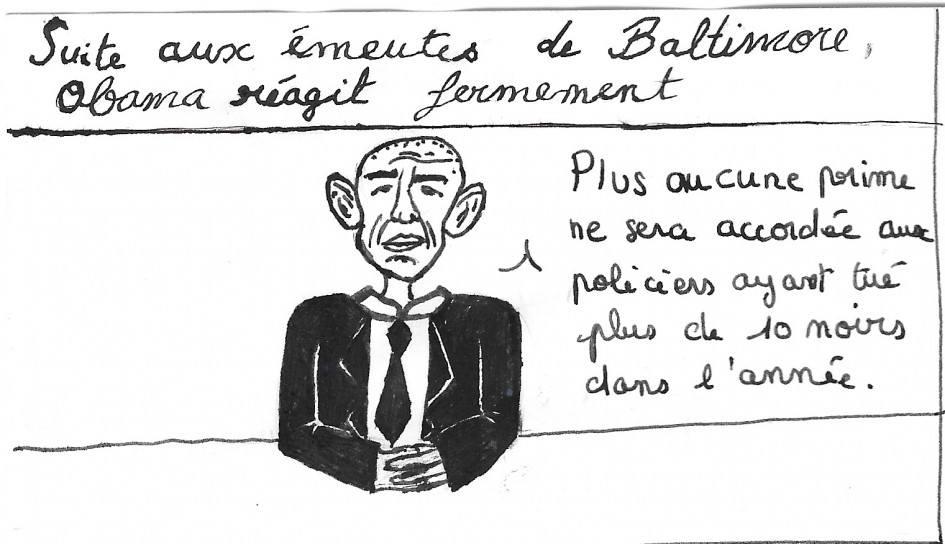 Suite aux émeutes de Baltimore,
Obama réagit fermement
Plus aucune prime
ne sera accordée aux
policiers ayant tué
plus de 10 noirs
dans l'année.